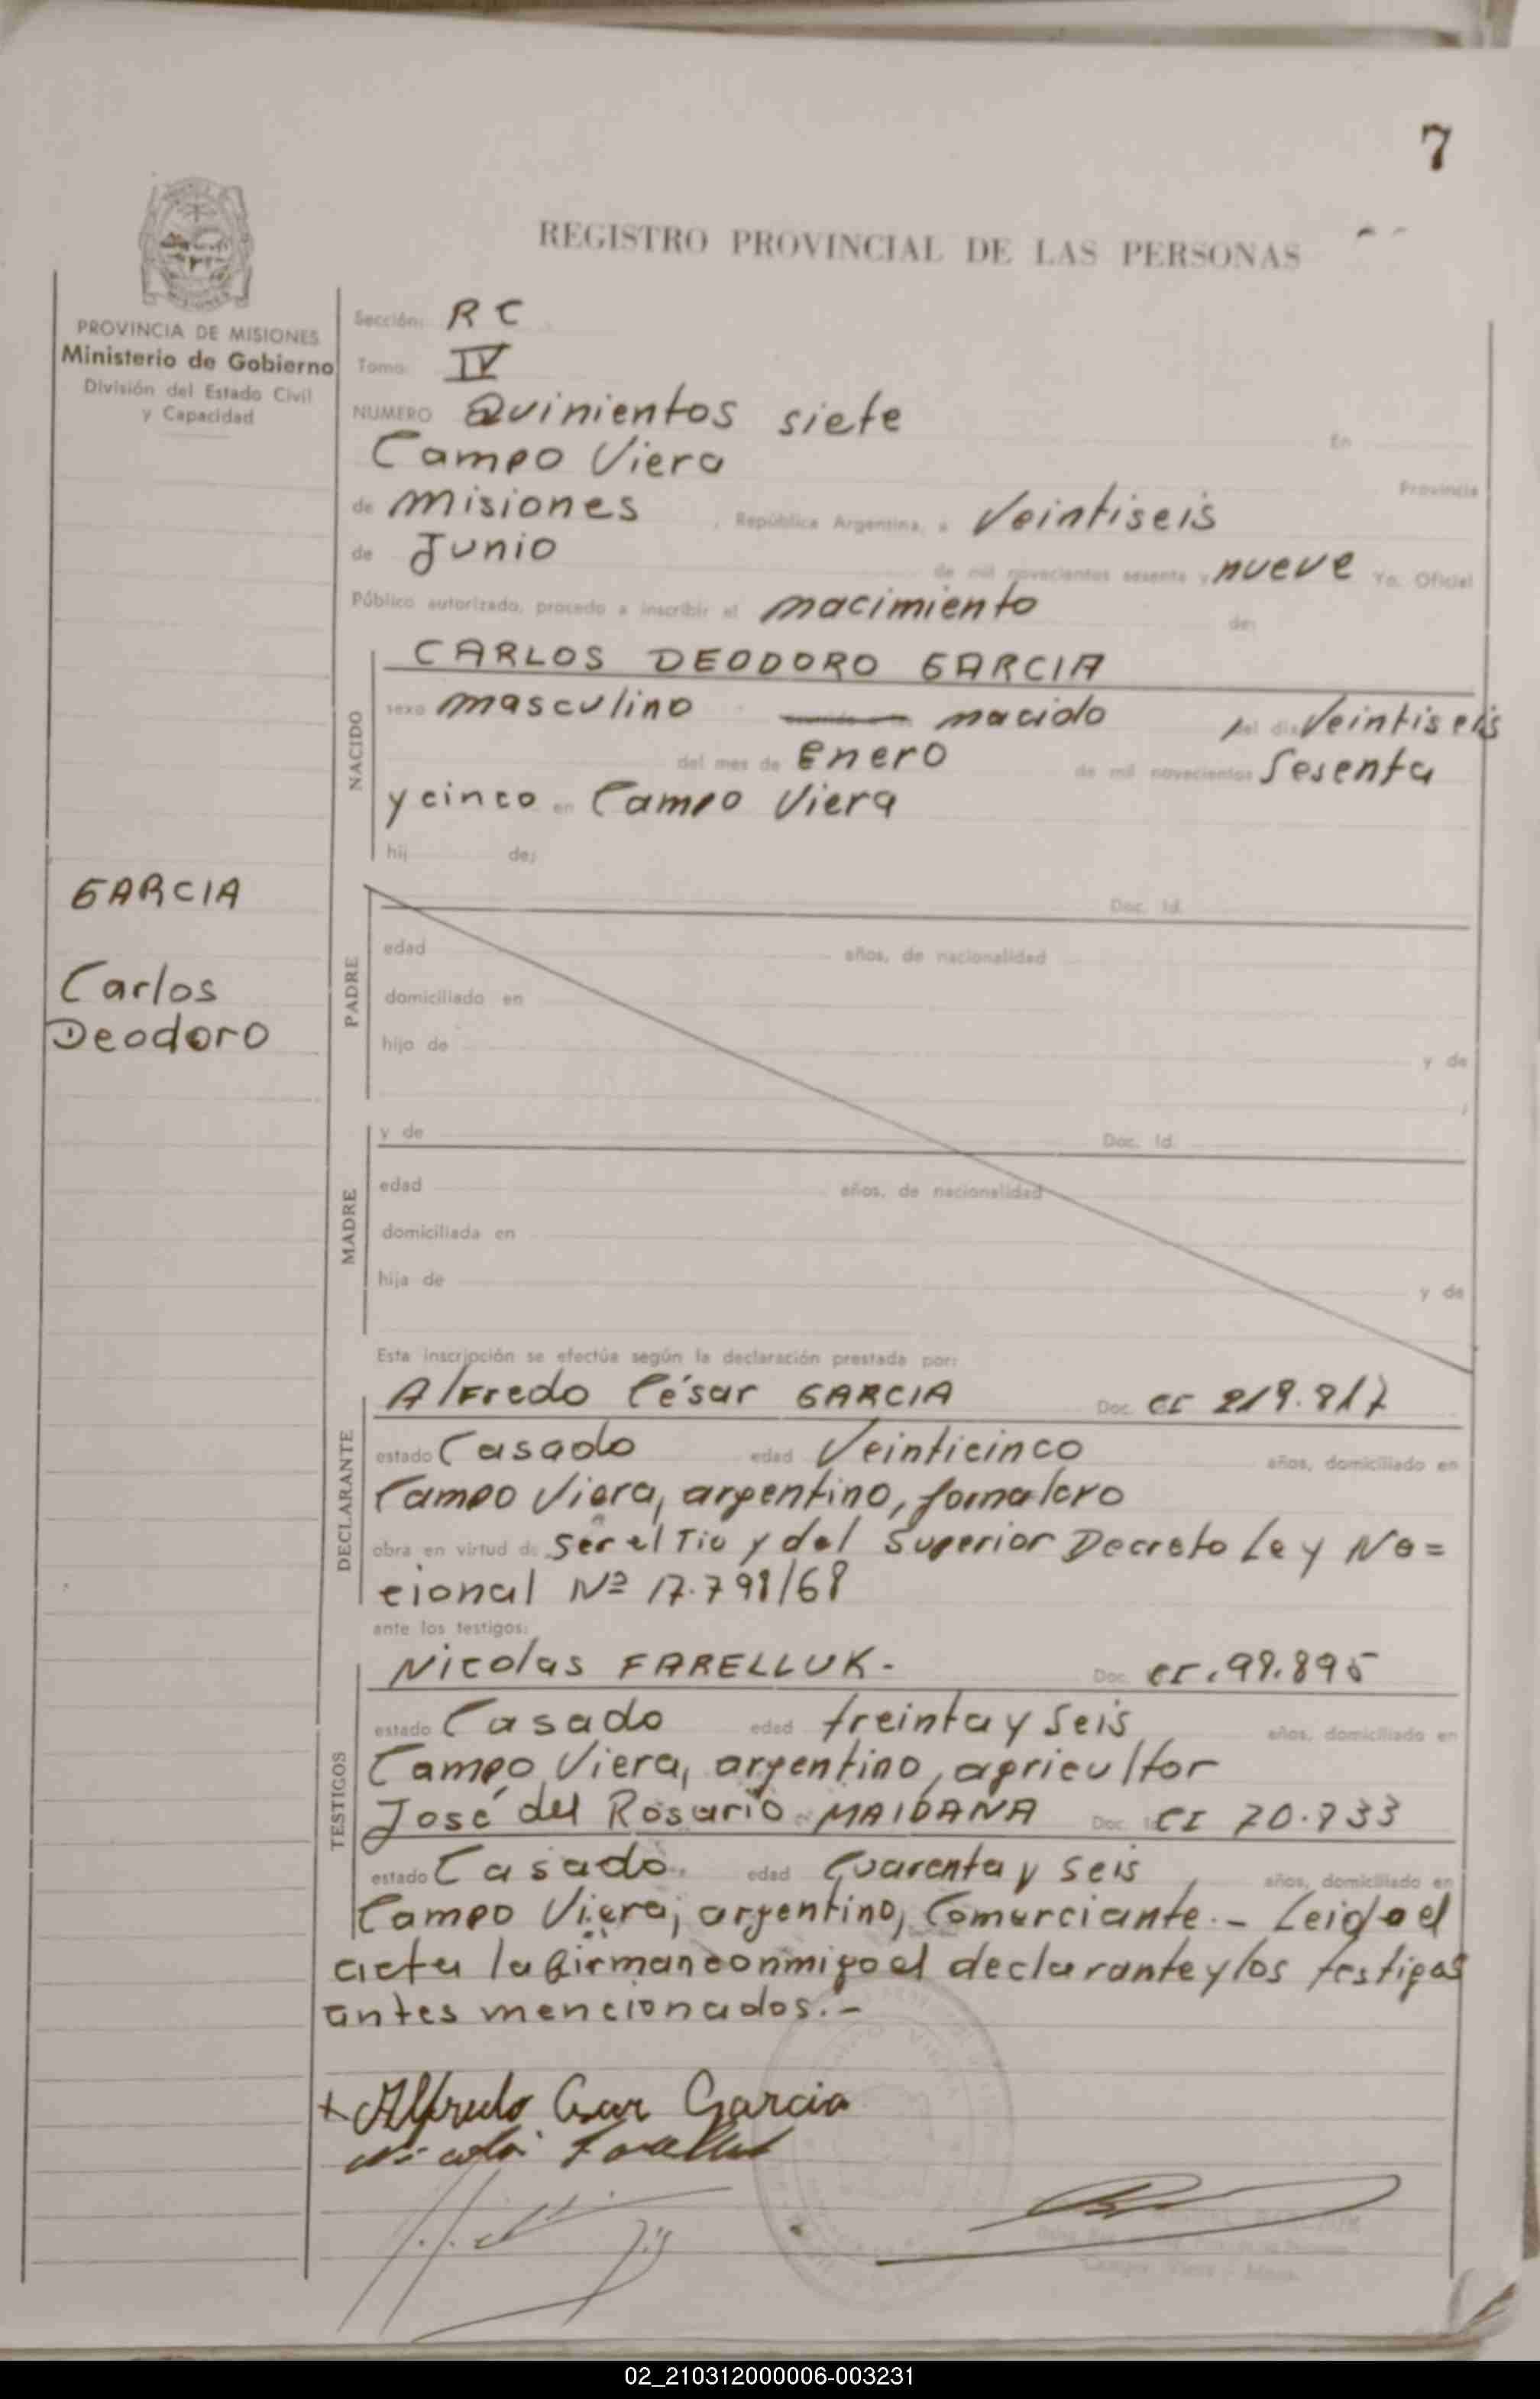 7
REGISTRO PROVINCIAL DE LAS PERSONAS
PROVINCIA DE MISIONES
Ministerio de Gobierno
División del Estado Civil
y Capacidad
Sección: RC
Tomo: IV
NUMERO Quinientos siete En
Campo Viera Provincia
de Misiones, República Argentina, a Veintiseis
de Junio de mil novecientos sesenta y nueve Yo. Oficial
Público autorizado, procedo a inscribir el nacimiento de:
NACIDO
CARLOS DEODORO GARCIA
sexo masculino nacido del día Veintiseis
del mes de Enero de mil novecientos Sesenta
y cinco en Campo Viera
hij de:
GARCIA
Carlos
Deodoro
PADRE
Doc. Id.
edad años, de nacionalidad
domiciliado en
hijo de y de
MADRE
y de Doc. Id.
edad años, de nacionalidad
domiciliada en
hija de y de
Esta inscripción se efectúa según la declaración prestada por:
DECLARANTE
Alfredo César GARCIA Doc. CI 219.817
estado Casado edad Veinticinco años, domiciliado en
Campo Viera, argentino, jornalero
obra en virtud de Ser el Tio y del Superior Decreto Ley Na=
cional Nº 17.798/68
ante los testigos:
TESTIGOS
Nicolas FARELLUK.- Doc. CI.99.895
estado Casado edad treinta y Seis años, domiciliado en
Campo Viera, argentino, agricultor
José del Rosario MAIDANA Doc. Id. CI 70.933
estado Casado edad Cuarenta y seis años, domiciliado en
Campo Viera, argentino, Comerciante.- Leida el
acta la firman conmigo el declarante y los testigos
antes mencionados.-
Alfredo Cesar Garcia
Campo Viera
02_210312000006-003231